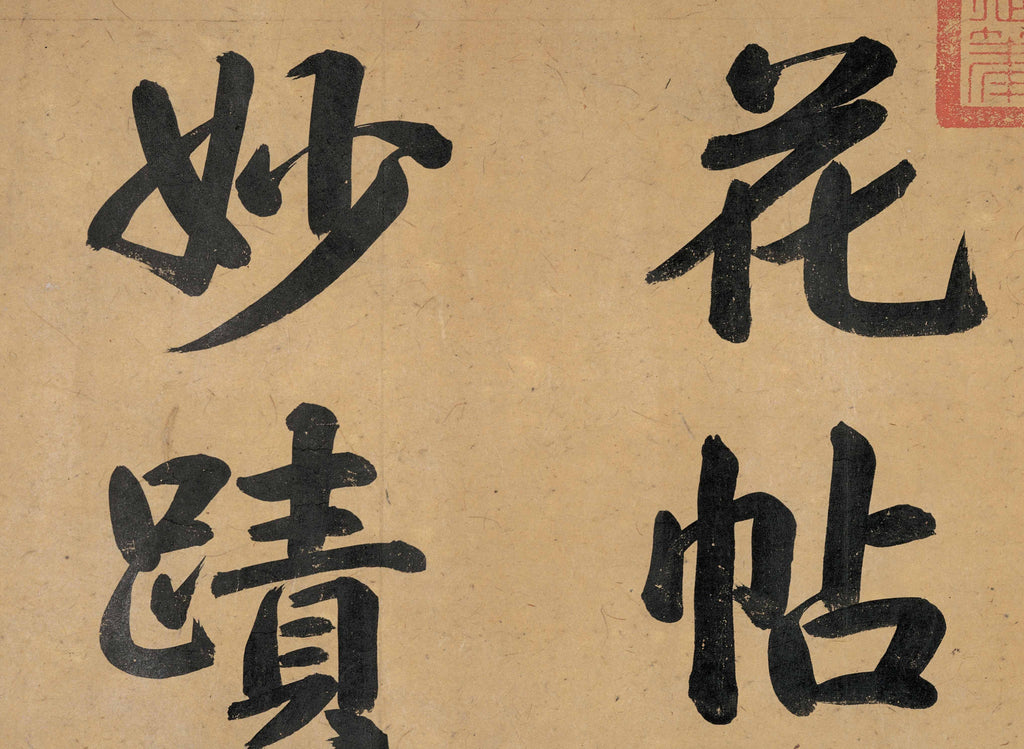 花帖
妙蹟